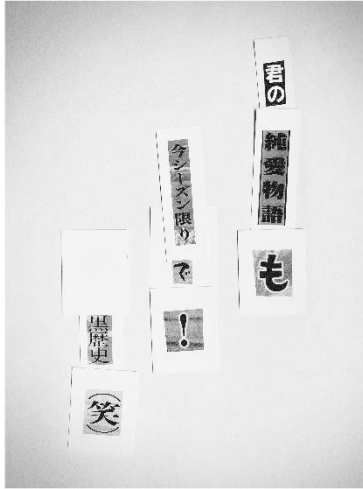 君の純愛物語も
今シーズン限りで!
黒歴史(笑)